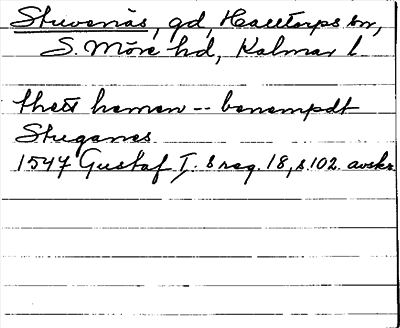 Stuvenäs, gd, Halltorps sn,
S. Möre hd, Kalmar l.
thett heman -- benempdt
Stuganes
1547 Gustaf I:s reg. 18, s. 102. avskr.